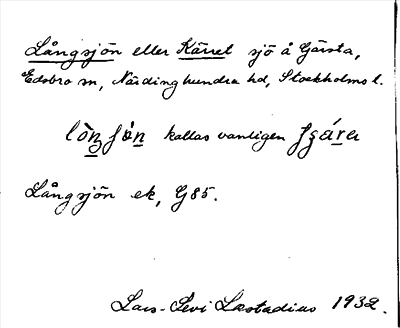 Långsjön eller Kärret sjö å Gärsta,
Edsbro sn, Närdinghundra hd, Stockholms l.
kallas vanligen
Långsjön ek, G85.
Lars-Levi Læstadius 1932.